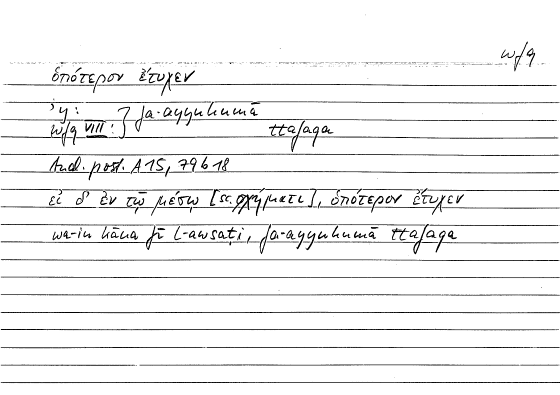 wfq
ὁπότερον ἔτυχεν
ʾy: } fa-ayyuhumā
wfq VIII: } ttafaqa
And. post. A 15, 79 b 18
εἰ δ᾽ ἐν τῷ μέσῳ [sc. σχήματι], ὁπότερον ἔτυχεν
wa-in kāna fī l-awsaṭi, fa-ayyuhumā ttafaqa